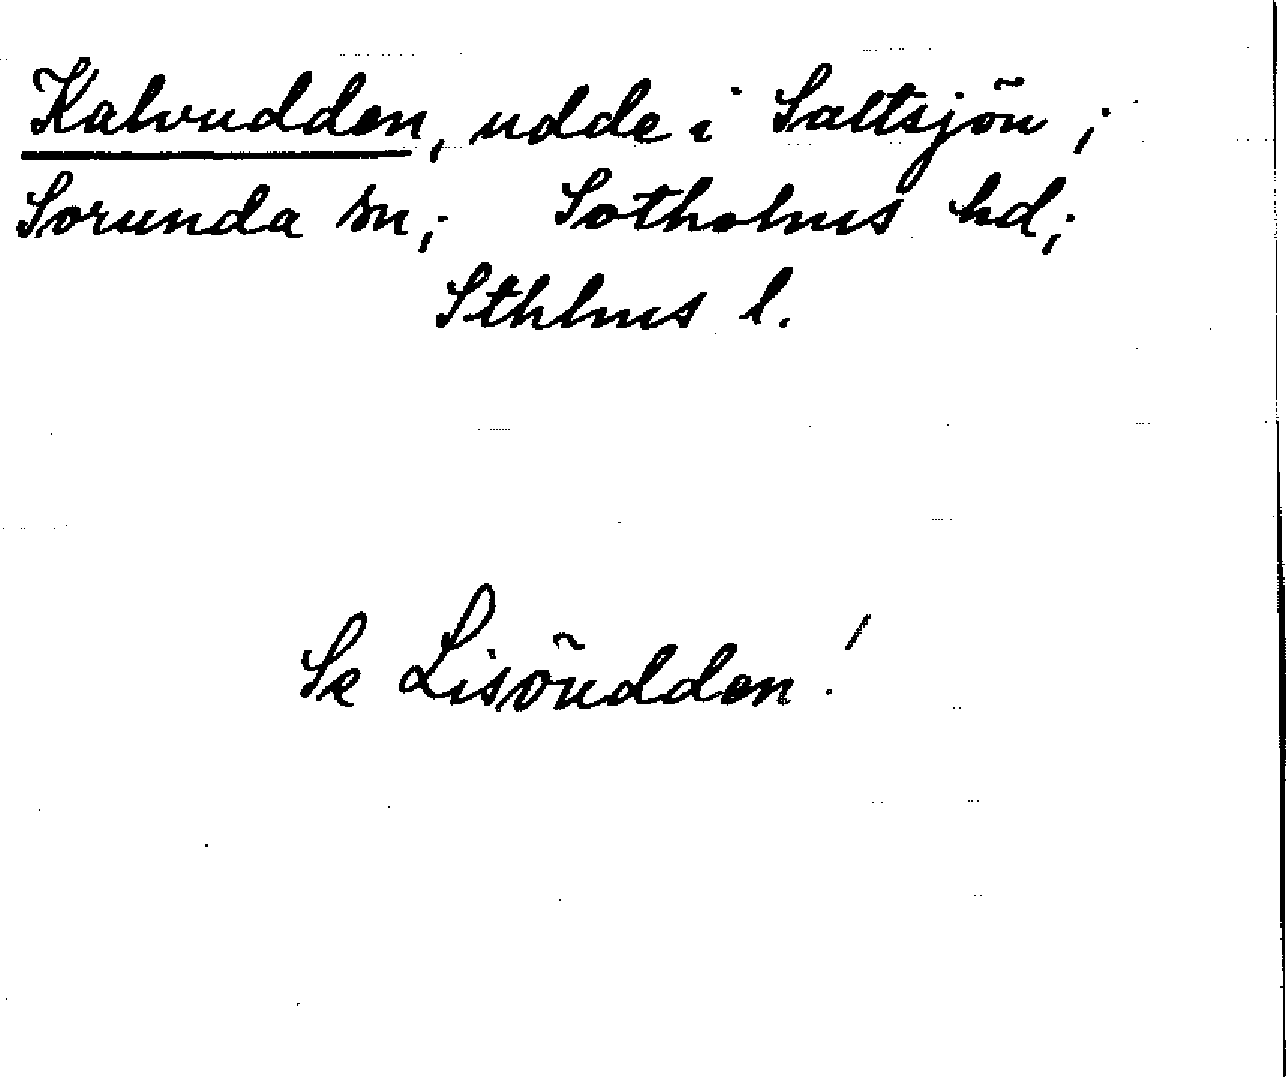 Kalvudden, udde i Saltsjön;
Sorunda sn; Sotholms hd;
Sthlms l.
Se Lisöudden!